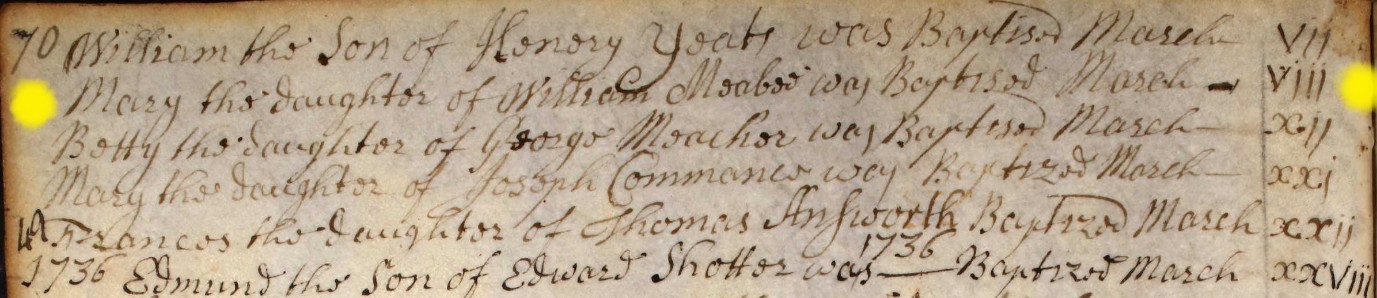 70 William the Son of Henery Yeats was Baptised March VII
Mary the daughter of William Meabee was Baptised March VIII
Betty the daughter of George Meacher was Baptised March XII
Mary the daughter of Joseph Commance was Baptized March XXI
Frances the daughter of Thomas Answorth Baptized March XXII
1736
1736 Edmund the Son of Edward Shotter was Baptized March XXVIII